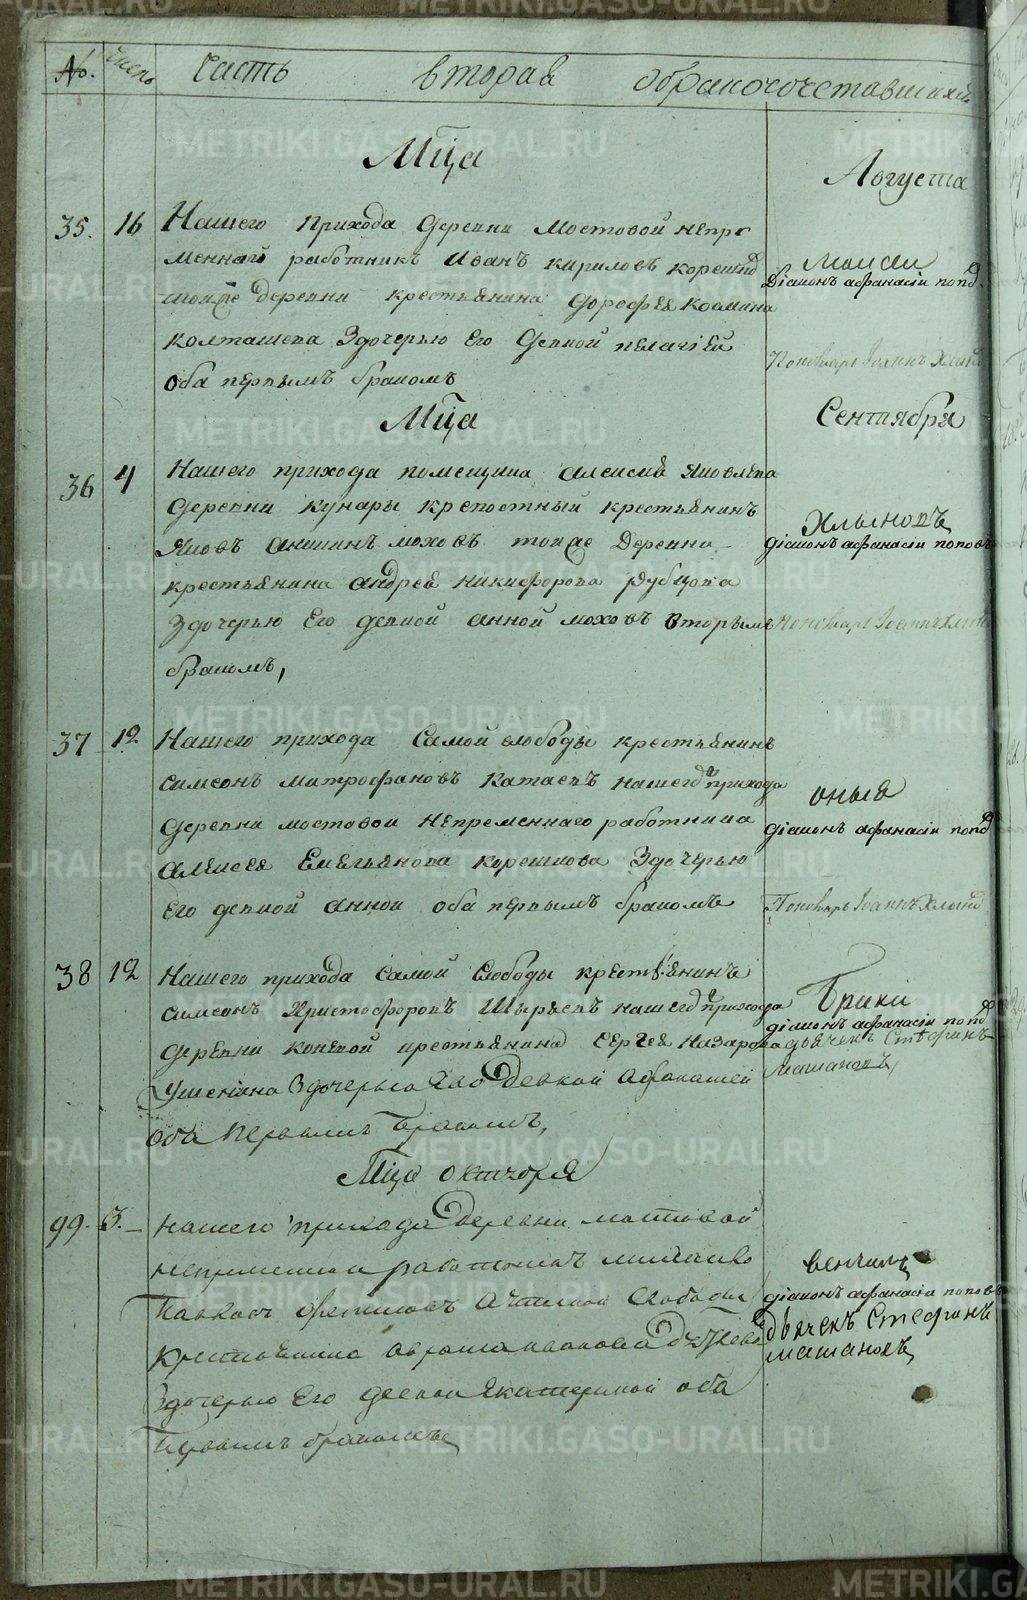 №. Число Часть вторая обракосочетавшихся
Мца Августа
35. 16 Нашего Прихода деревни Мостовой непре
меннаго работникъ Иванъ Кириловъ Корешк
тойже деревни крестьянина Дорофея Козмина
Колташева Здочерью Его девкой Пелагiей
оба первымъ бракомъ
Дiаконъ Афанасiи Попов
Пономарь Iоаннъ Хлын
Мца Сентября
36 4 Нашего прихода помещика Алексия Яковлева
деревни Кунары крепостный крестьянинъ
Яковъ Моховъ тойже деревни
крестьянина Андрея Никифорова Рубцова
Здочерью Его девкой Анной Моховъ вторымъ
бракомъ,
Хлыновъ
дiаконъ афанасiи поповъ
Пономарь Iоаннъ Хлын
37 12 Нашего прихода Самой слободы крестьянинъ
Симеонъ Митрофановъ Катаевъ нашего прихода
деревни мостовои Непременнаго работника
Алексея Емельянова Корешкова Здочерью
Его девкой Анной оба первымъ бракомъ
оныя
дiаконъ афанасiи попов
Пономарь Iоаннъ Хлынов
38 12 Нашего прихода Самой Слободы крестьянинъ
Симеонъ Христофоровъ Шыряевъ нашего прихода
деревни Коневой крестьянина Сергея Назарова
Здочерью Его Девкой Афанасiей
Оба Первымъ бракомъ,
Браки
дiаконъ афанасiи попов
дьячекъ Стефанъ
Мца октября
99. 3. Нашего прихода Деревни мостовой
непременнаи работникъ
Слободы
крестьянина
Здочерью Его девкои Екатериной оба
Первымъ бракомъ
венчалъ
дiаконъ афанасiи поповъ
дьячекъ Стефанъ